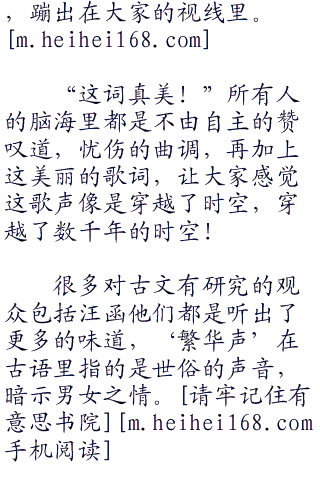 ，蹦出在大家的视线里。
[m.heihei168.com]
“这词真美！”所有人
的脑海里都是不由自主的赞
叹道，忧伤的曲调，再加上
这美丽的歌词，让大家感觉
这歌声像是穿越了时空，穿
越了数千年的时空！
很多对古文有研究的观
众包括汪函他们都是听出了
更多的味道，‘繁华声’在
古语里指的是世俗的声音，
暗示男女之情。[请牢记住有
意思书院][m.heihei168.com
手机阅读]